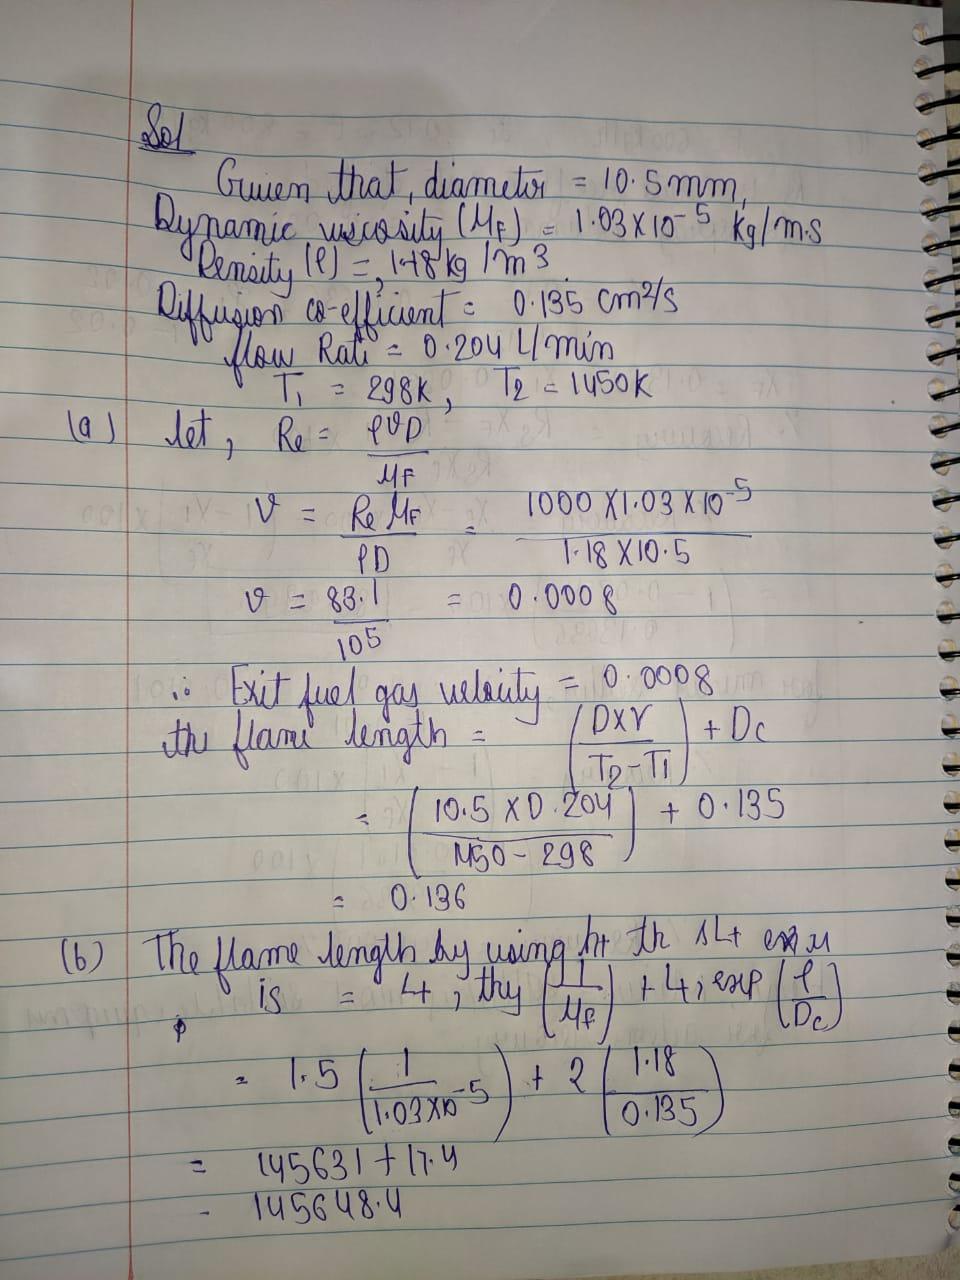 Sol
Given that, diameter = 10.5mm,
Dynamic viscosity (MF) = 1.03X10-5 kg/m.s
Density (ρ) = 1.18 kg/m3.
Diffusion co-efficient = 0.135 cm2/s
flow Rate = 0.204 L/min
T1 = 298K, T2 = 1450K
(a) let, Re = ρϑD / MF
ϑ = Re MF / ρD = 1000 X1.03 X10-5 / 1.18 X10.5
ϑ = 83.1 / 105 = 0.0008
∴ Exit fuel gas velocity = 0.0008
the flame length = (DXV / T2-T1) + Dc
= (10.5 X0.204 / 1450-298) + 0.135
= 0.136
(b) The flame length by using the
is = Lf, thy (1 / MF) + Lf, exp (ρ / Dc)
= 1.5 (1 / 1.03X10-5) + 2 (1.18 / 0.135)
= 145631 + 17.4
- 145648.4